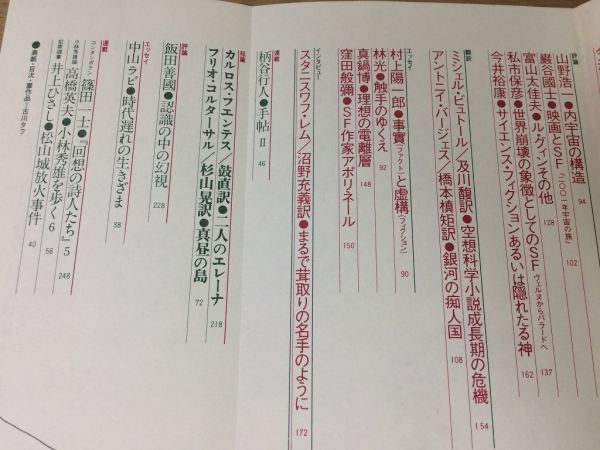 評論
山野浩一●内宇宙の構造 94
巖谷國士●映画とSF 『二〇〇一年宇宙の旅』 102
富山太佳夫●ル・グィンその他 128
私市保彦●世界崩壊の象徴としてのSF ヴェルヌからバラードへ 137
今井裕康●サイエンス・フィクションあるいは隠れたる神 162
翻訳
ミシェル・ビュトール/及川馥訳●空想科学小説成長期の危機 154
アントニイ・バージェス/橋本槙矩訳●銀河の痴人国 108
エッセイ
村上陽一郎●事實(ファクト)と虚構(フィクション) 90
林光●触手のゆくえ 92
真鍋博●理想の電離層 148
窪田般彌●SF作家アポリネール 150
インタビュー
スタニスワフ・レム/沼野充義訳●まるで茸取りの名手のように 172
連載
柄谷行人●手帖Ⅱ 46
短篇
カルロス・フエンテス/鼓直訳●二人のエレーナ 218
フリオ・コルターサル/杉山晃訳●真昼の島 72
評論
飯田善國●認識の中の幻視 228
エッセイ
中山ラビ●時代遅れの生きざま 38
連載
コンタンポラン 篠田一士●『回想の詩人たち』5 248
小林秀雄論 高橋英夫●小林秀雄を歩く6 56
犯罪調書 井上ひさし●松山城放火事件 40
●表紙・目次・扉作品=古川タク